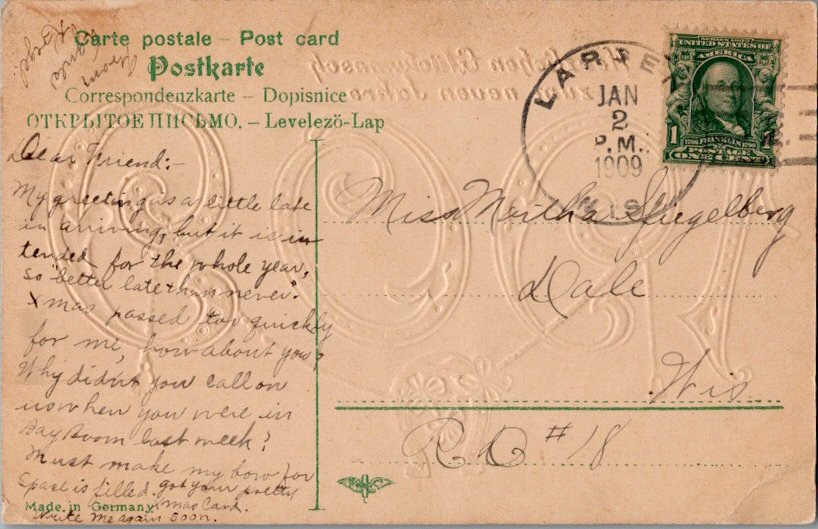 Carte postale – Post card
Postkarte
Correspondenzkarte – Dopisnice
ОТКРЫТОЕ ПИСЬМО. – Levelezö-Lap
Dear Friend:-
My greeting is a little late
in arriving, but it is in
tended for the whole year,
so "better late than never."
Xmas passed too quickly
for me, how about you?
Why didn't you call on
us when you were in
Bay Boom last week?
Must make my bow for
space is filled. got your pretty
Xmas Card.
Write me again soon.
Made in Germany
From
LARSEN
JAN
2
P.M.
1909
WIS.
UNITED STATES OF
AMERICA
1
FRANKLIN
POSTAGE
ONE CENT
Miss Meitha Spiegelberg
Dale
Wis.
R D # 18